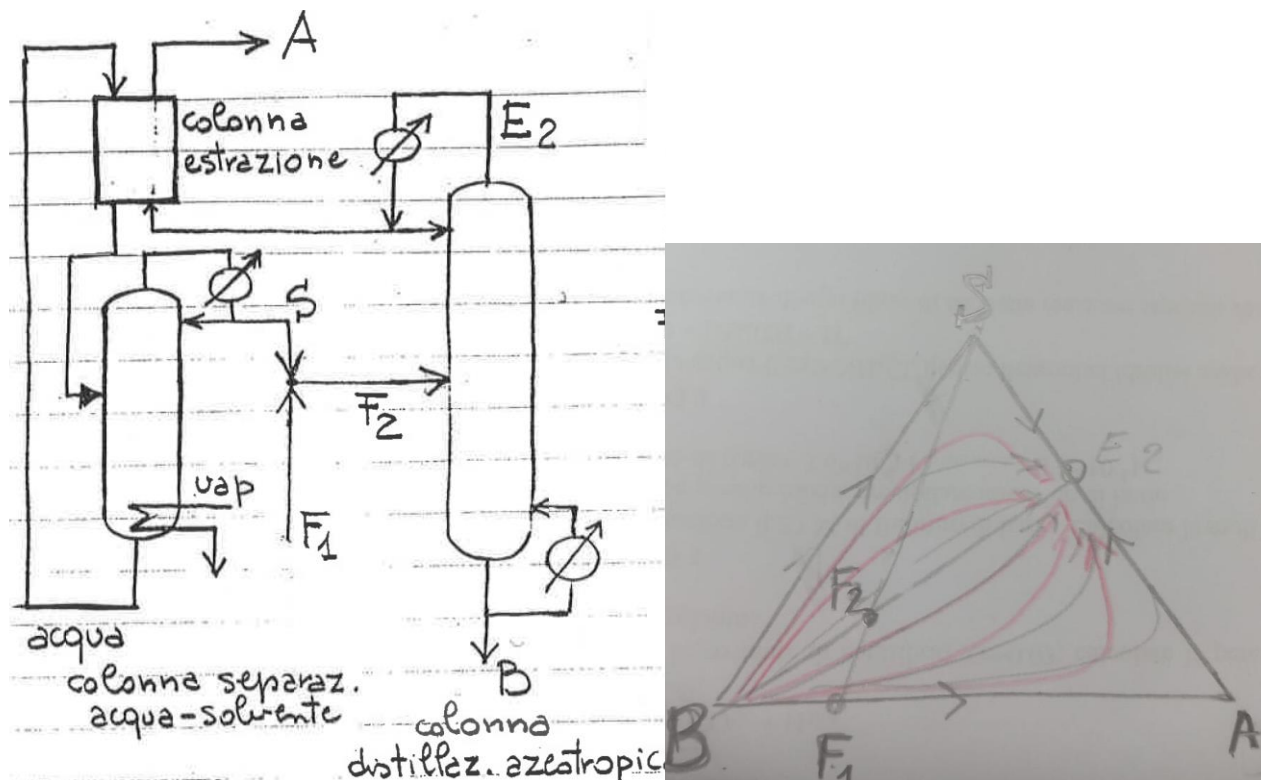 A
colonna
estrazione
E2
S
F2
vap
F1
acqua
colonna separaz.
acqua-solvente
B
colonna
distillaz. azeotropica
S
E2
F2
B
F1
A